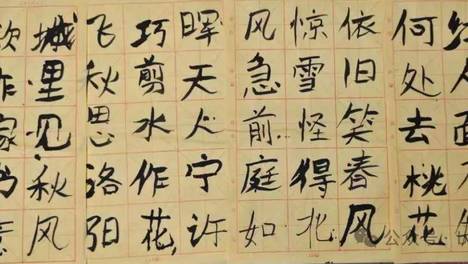 红人面
何处去桃花
依旧笑春风
惊雪怪得北
风急前庭如
晖天人宁许
巧剪水作花
飞秋思洛阳
城里见秋风
欲作家书意
公众号